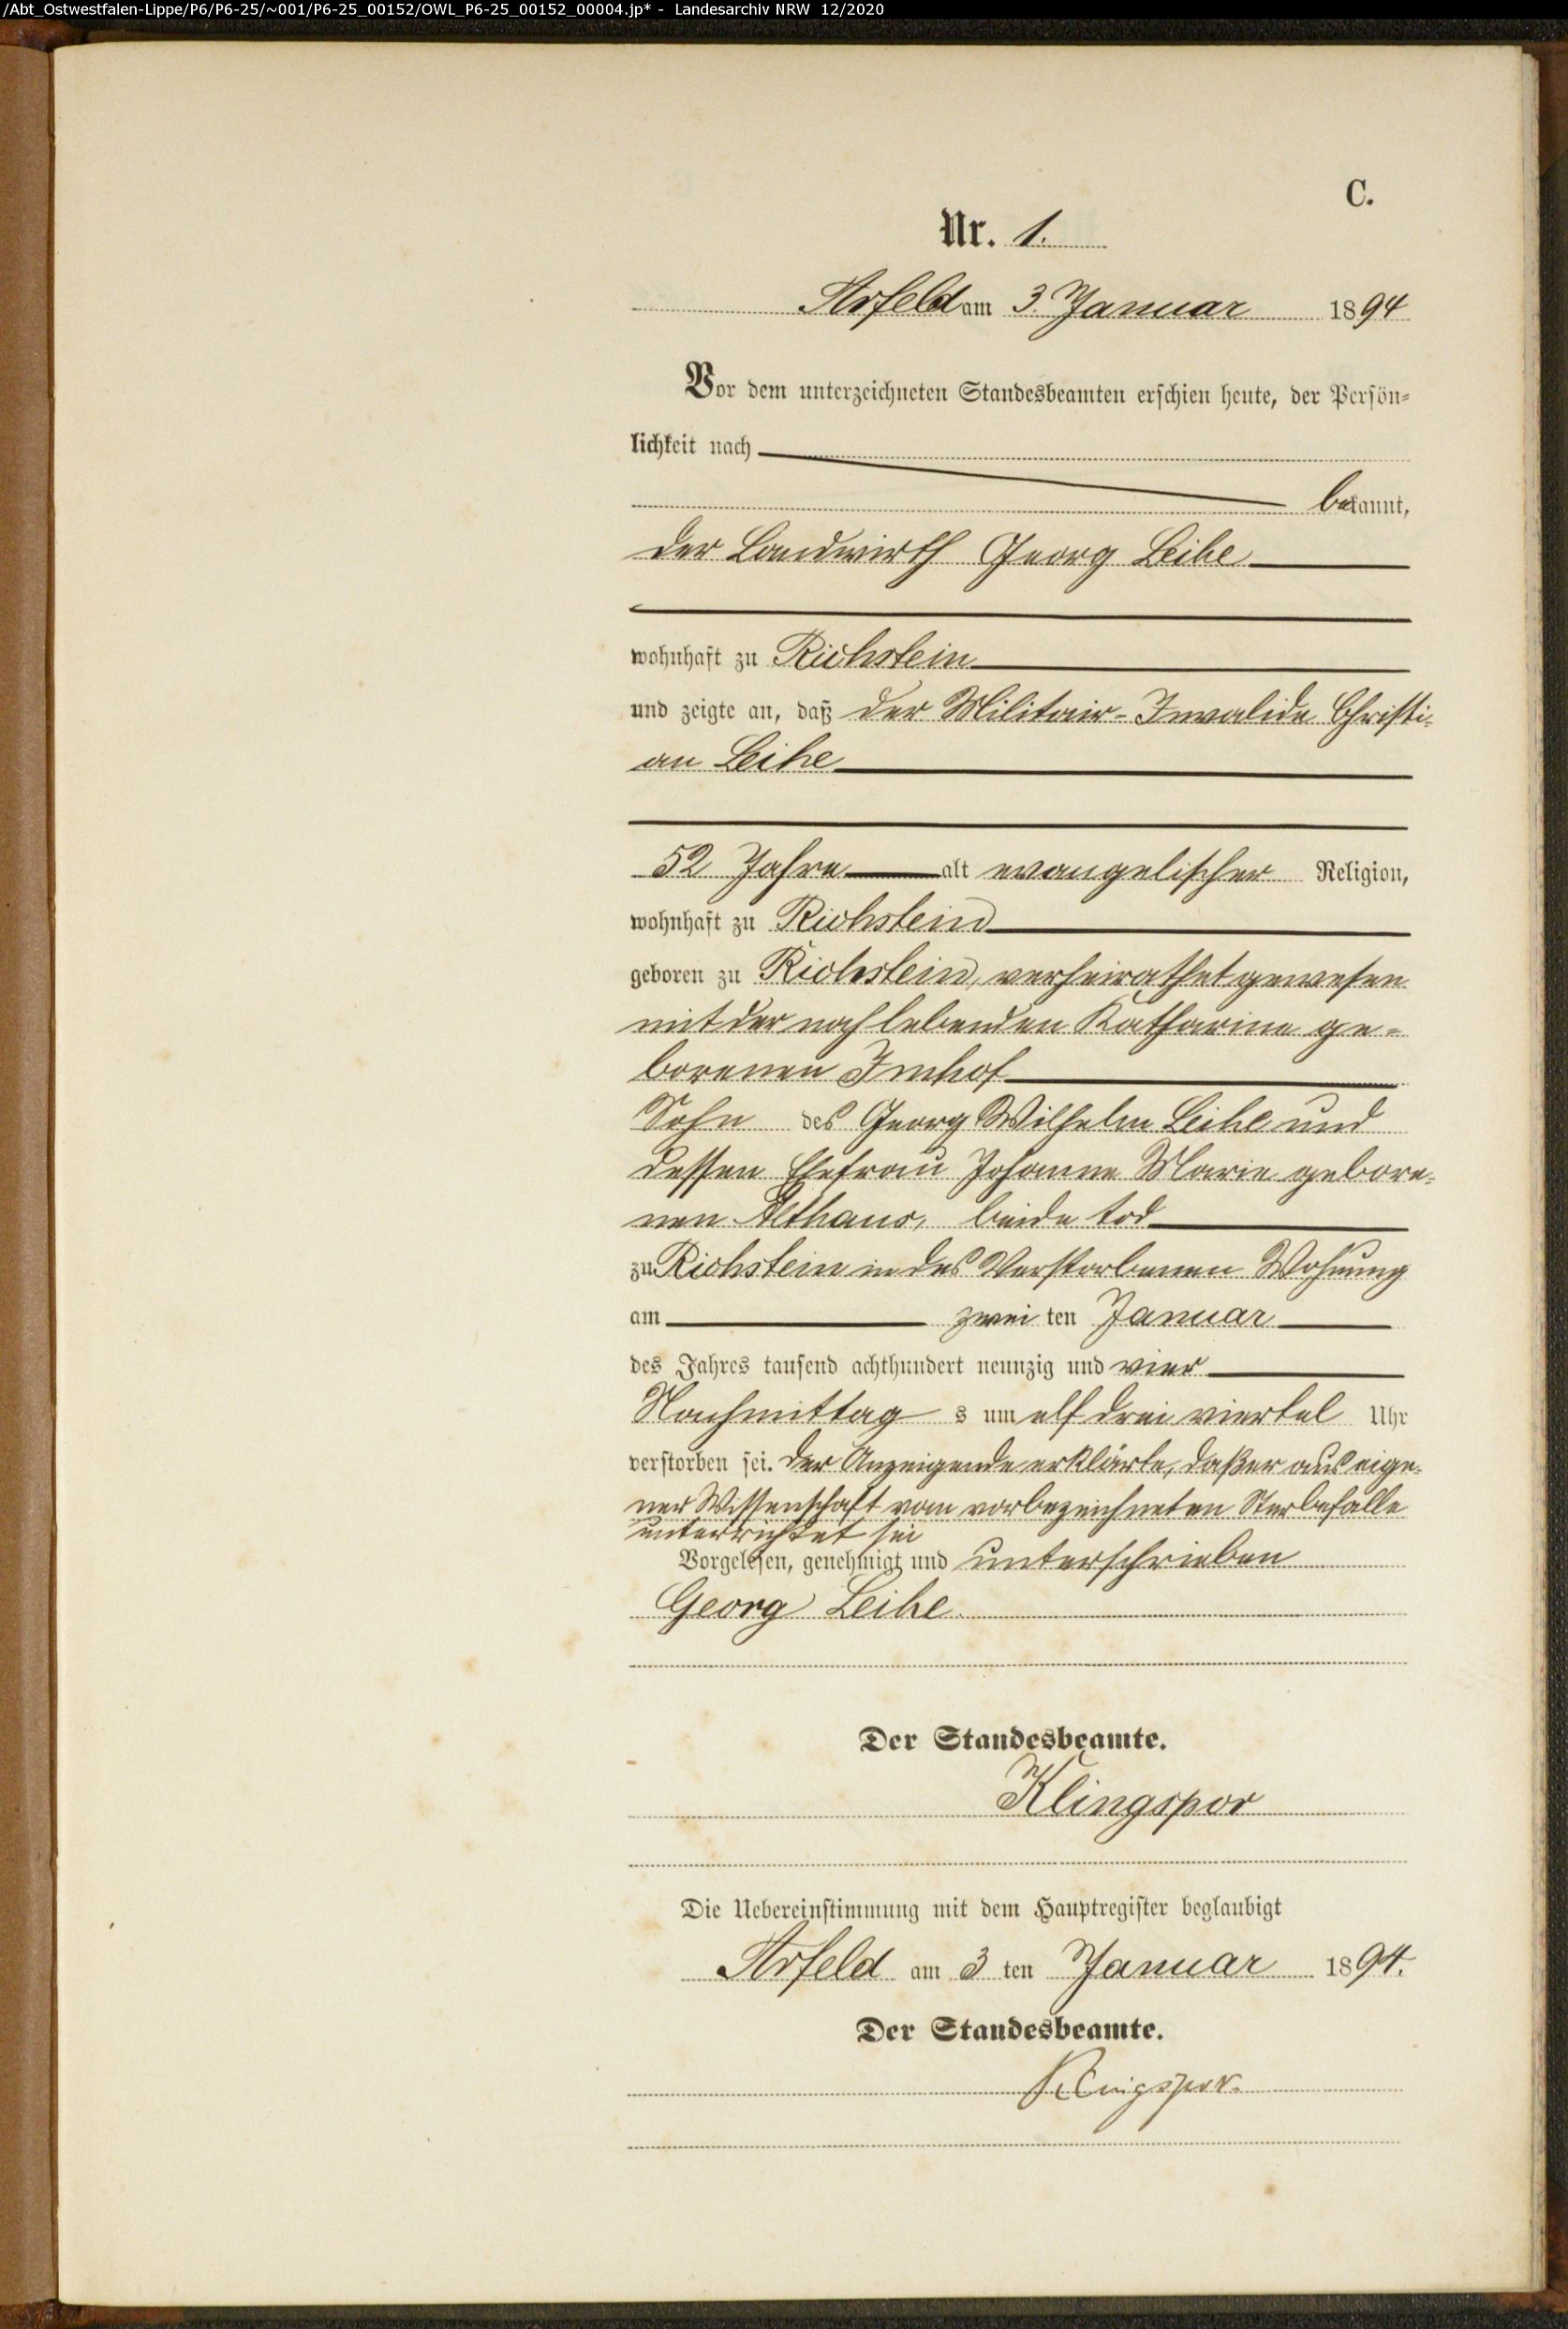 /Abt_Ostwestfalen-Lippe/P6/P6-25/~001/P6-25_00152/OWL_P6-25_00152_00004.jp* - Landesarchiv NRW 12/2020
C.
Nr. 1.
Arfeld am 3. Januar 1894
Vor dem unterzeichneten Standesbeamten erschien heute, der Persön-
lichkeit nach
bekannt,
der Landwirth Georg Leihe
wohnhaft zu Richstein
und zeigte an, daß der Militair-Invalide Christi-
an Leihe
52 Jahre alt evangelischer Religion,
wohnhaft zu Richstein
geboren zu Richstein, verheirathet gewesen
mit der noch lebenden Katharine ge-
borenen Imhof
Sohn des Georg Wilhelm Leihe und
dessen Ehefrau Johanne Marie gebore-
nen Althaus, beide tod
zu Richstein in des Verstorbenen Wohnung
am zwei ten Januar
des Jahres tausend achthundert neunzig und vier
Nachmittag s um elf drei viertel Uhr
verstorben sei. Der Anzeigende erklärte, daß er aus eige-
ner Wissenschaft vom vorbezeichneten Sterbefalle
unterrichtet sei
Vorgelesen, genehmigt und unterschrieben
Georg Leihe
Der Standesbeamte.
Klingspor
Die Uebereinstimmung mit dem Hauptregister beglaubigt
Arfeld am 3 ten Januar 1894.
Der Standesbeamte.
Klingspor.